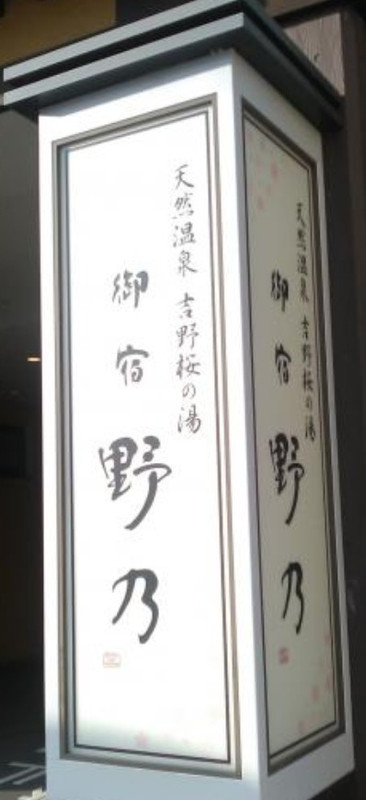 天然温泉 吉野桜の湯
御宿 野乃
天然温泉 吉野桜の湯
御宿 野乃